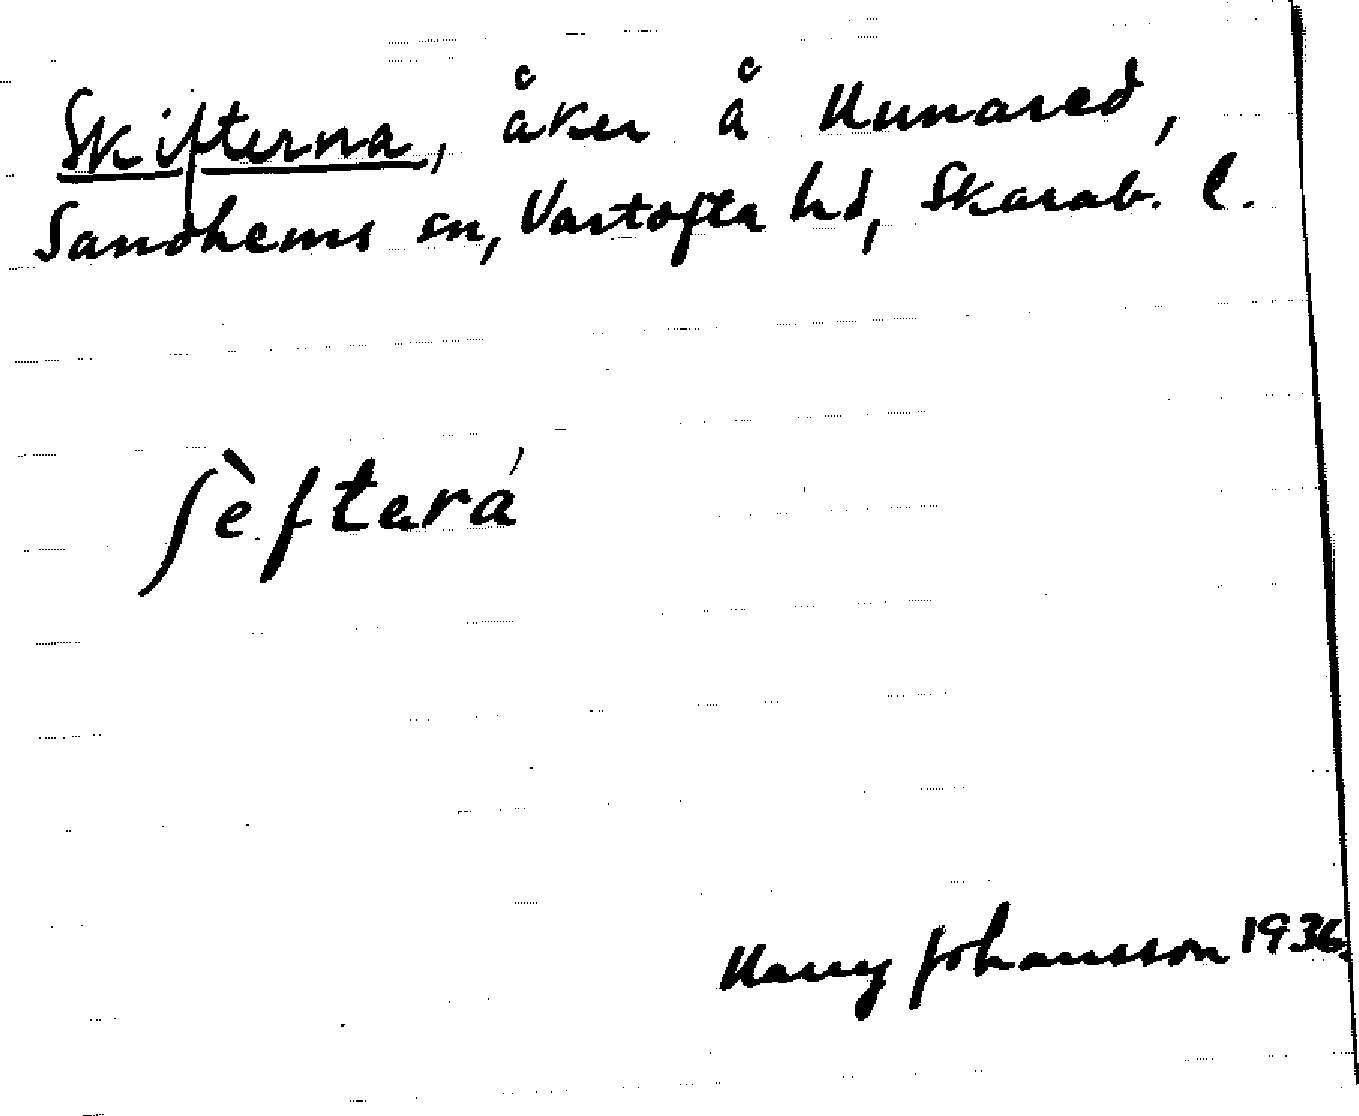 Skifterna, åker å Hunared,
Sandhems sn, Vartofta hd, Skarab. l.
ʃèfterá
Harry Johansson 1936.